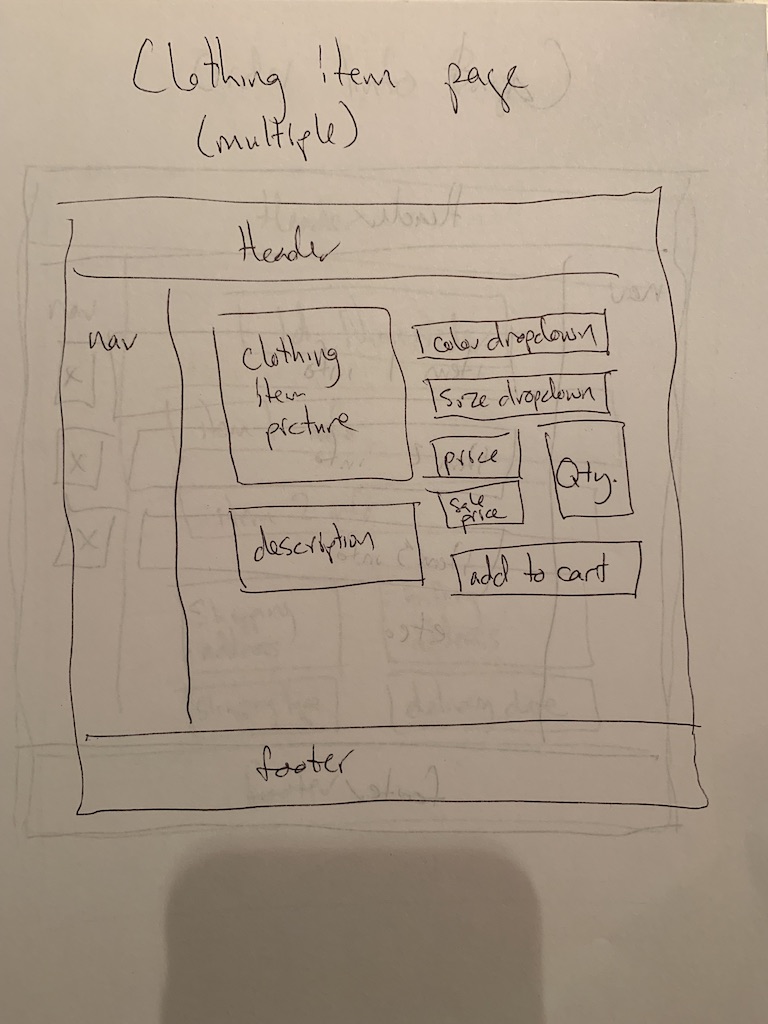 Clothing item page
(multiple)
Header
nav
clothing
item
picture
color dropdown
size dropdown
price
Qty.
sale
price
description
add to cart
footer